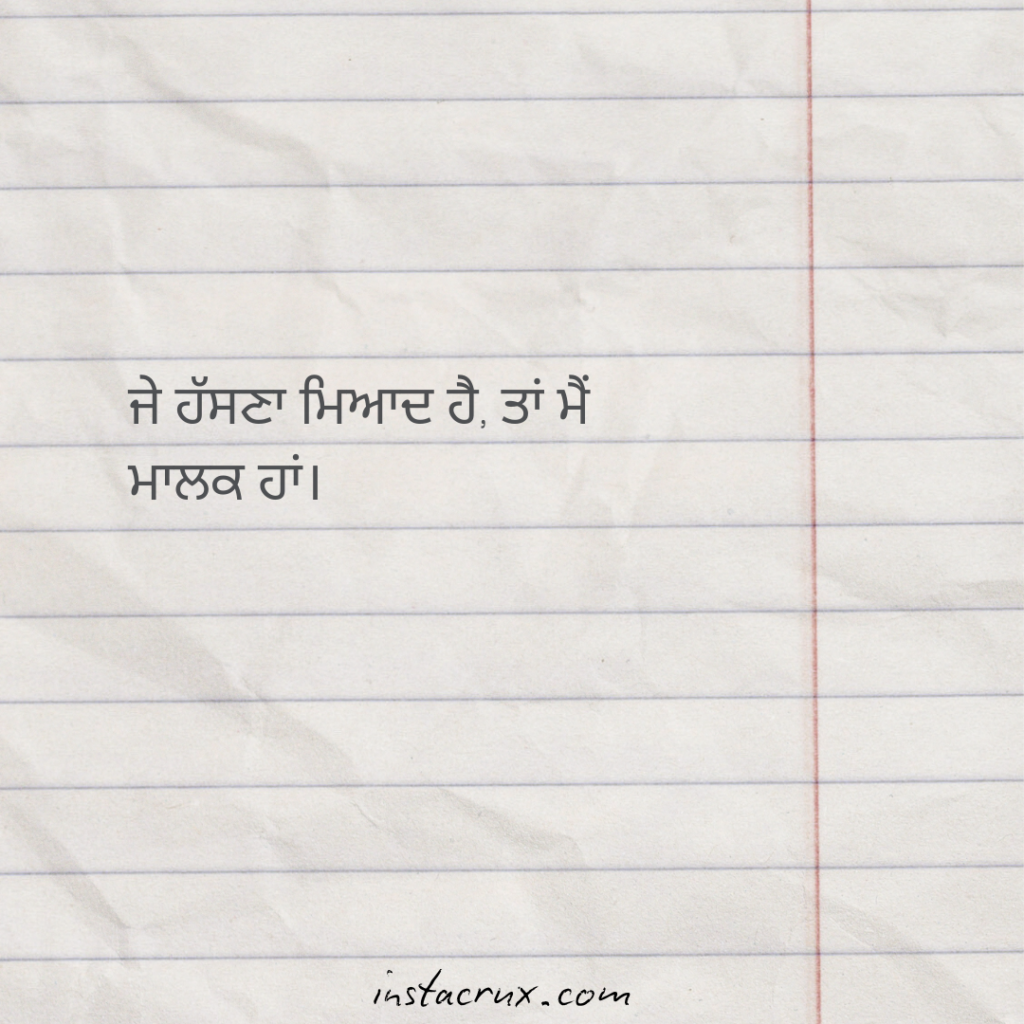 ਜੇ ਹੱਸਣਾ ਮਿਆਦ ਹੈ, ਤਾਂ ਮੈਂ
ਮਾਲਕ ਹਾਂ।
instacrux.com